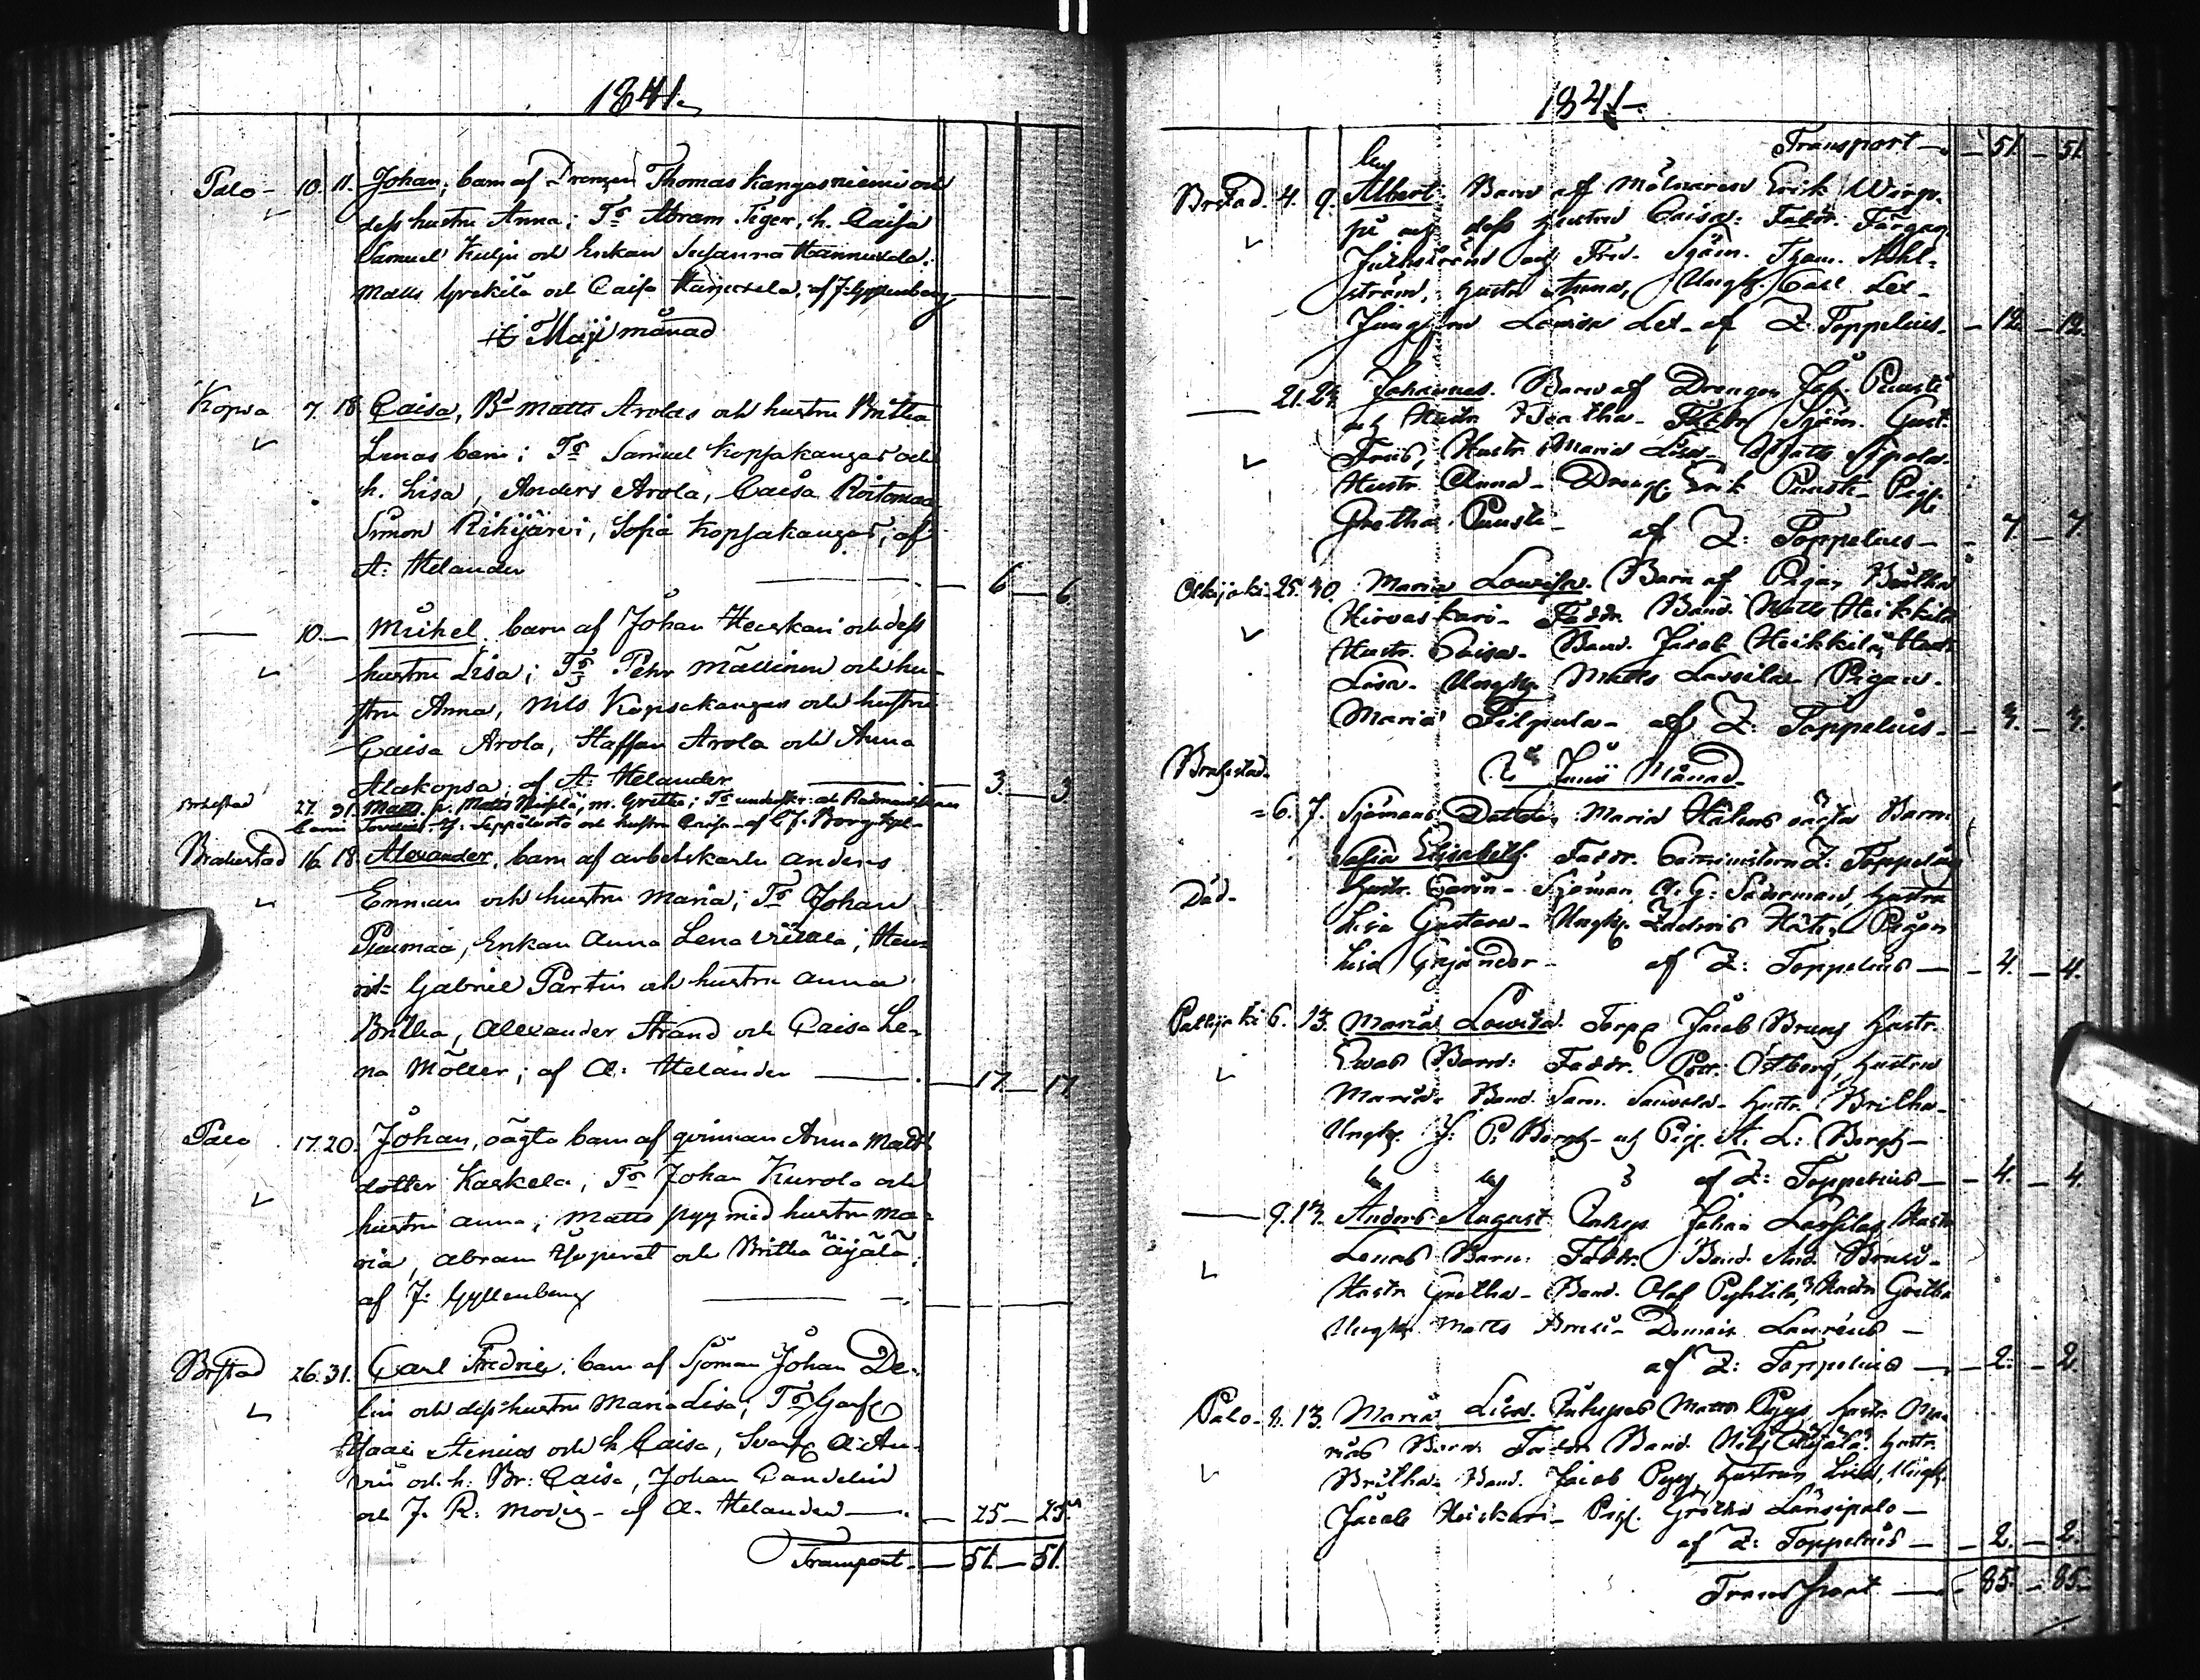 1841.
Palo - 10. 11. Johan, barn af Drengen Thomas Kangasniemi och
dess hustru Anna; Ts Abram Tiger, h. Caisa
Samuel Kulju och Enkan Susanna Hannuksela.
Matts och Caisa af J. Gyllenberg
Maji månad
Kopsa 7. 18. Caisa, Bd Matts Arolas och hustru Britta
Lenas barn; Ts Samuel Kopsakangas och
h. Lisa, Anders Arola, Caisa Roitomaa
Simon Rikijärvi, Sofia Kopsakangas, af
A: Helander 6 6
10. Mickel, barn af Johan Heiskari och dess
hustru Lisa; Ts Pehr Mällinen och hu-
stru Anna, Nils Kopsakangas och hustru
Caisa Arola, Staffan Arola och Anna
Alakopsa, af A: Helander 3 3
Brahestad 27. 31. Matts, m. Gretha; Ts
och hustru Caisa - af C. J. Borg
Brahestad 16. 18. Alexander, barn af arbetskarln Anders
Enman och hustru Maria; Ts Johan
Piumaa, Enkan Anna Lena
Gabriel Partin och hustru Anna
Britha, Alexander Strand och Caisa Le-
na Möller; af A: Helander 17 17
Palo 17. 20. Johan, oägta barn af qvinnan Anna Matts
dotter Kaskela, Ts Johan Kurola och
hustru Anna; Matts Pyy med hustru Ma-
ria, Abram och Britha Äijälä;
af J: Gyllenberg
Brstad 26. 31. Carl Fredric, barn af Sjöman Johan De-
lin och dess hustru Maria Lisa; Ts Garfv
Isaac Stenius och h. Caisa, Svarfv A: An-
och h: Br: Caisa, Johan Candelin
och J. R: Modig - af A. Helander 25 25
Transport 51 51
1841
Transport 51 51
Brstad. 4. 9. Albert. Barn af Mölnaren Erik Wirp-
och dess Hustru Caisa: Faddr. Färgar.
och Fru. Sjöm. Tham. Ahl-
ström, Hustr Anna, Ungk. Carl Lex-
Jungfru Lovisa Lex - af Z: Toppelius 12 12
21. 24. Johannes. Barn af Drengen Joh. Puusti
och Hustr. Bertha - Faddr Sjöm. Gust.
Friis, Hustr Maria Lisa - Matts Sipola.
Hustr. Anna - Dreng. Erik Puusti - Pig.
Gretha Puusti - af Z: Toppelius - 7 7
Olkijoki 25. 30. Maria Lovisa. Barn af Pigan Britha
Hirvaskari - Faddr. Bond. Matts Heikkilä
Hustr. Caisa - Bond. Jacob Heikkilä, Hustr
Lisa. Ungk. Matts Lassila Pigan
Maria Pilpula - af Z: Toppelius - 3. 3.
Brahestad
Junii Månad
6. 7. Sjömans Dotter Maria oägta Barn
Sofia Elisabeth. Faddr. Z: Toppelius
Död- Hustr. Carin - Sjöman A. G: Söderman, Hustru
Lisa Gustava - Ungk. Zachris Pigan
Lisa - af Z: Toppelius 4. 4.
Pattijoki 6. 13. Maria Lovisa. Torpp Jacob Brugg Hustr.
Evas Barn: Faddr. Östberg, Hustru
Maria - Bond. Sam. Hustr. Britha -
Ungk. J. P. Bergh - och Pig. A. L: Bergh -
af Z: Toppelius - 4. 4.
9. 13. Anders August Inhys. Johan Lassilas Hustr
Lenas Barn: Faddr. Bond. And. Bruus -
Hustr Gretha - Bond. Olof Pyhtilä, Hustr Gretha
Ungk. Matts Laurens -
af Z: Toppelius 2. 2.
Palo - 8. 13. Maria Lisa. Inhyses Matts Pyys Hustr. Ma-
rias Barn: Faddr Bond. Nils Äijälä Hustr.
Britha - Bond. Jacob Pyy, Hustrun Lisa, Ungk.
Jacob Heiskari - Pig. Gretha Länsipalo -
af Z: Toppelius 2. 2.
Transport 85 85